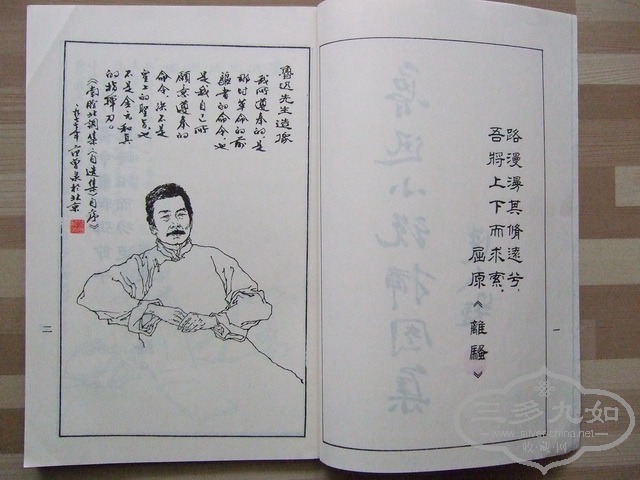 路漫漫其脩遠兮，
吾將上下而求索。
屈原《離騷》
一
魯迅先生造像
我所遵奉的是
那时革命的前
驅者的命令也
是我自己所
願意遵奉的
命令決不是
皇上的聖旨也
不是金元和真
的指揮刀。
《南腔北調集·《自選集》自序》
於北京
二
三多九如
收藏网